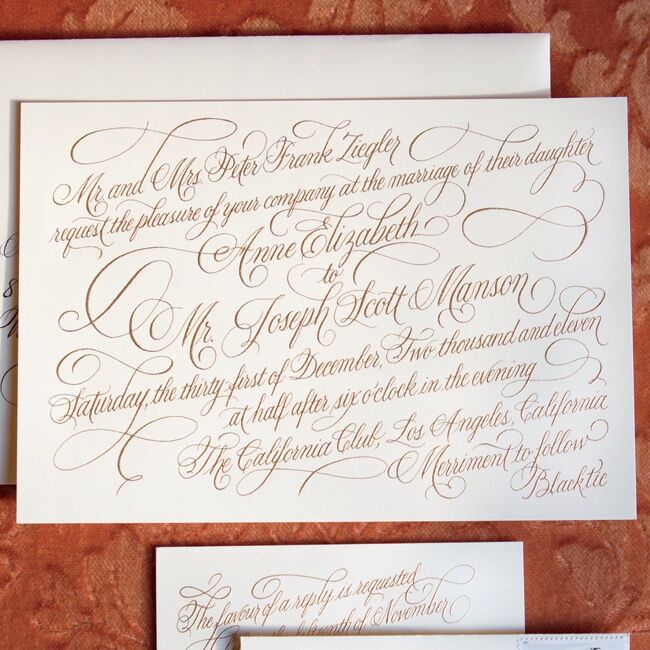 Mr. and Mrs. Peter Frank Ziegler
request the pleasure of your company at the marriage of their daughter
Anne Elizabeth
to
Mr. Joseph Scott Manson
Saturday, the thirty first of December, Two thousand and eleven
at half after six o'clock in the evening
The California Club, Los Angeles, California
Merriment to follow
Black tie
The favour of a reply is requested
fifteenth of November